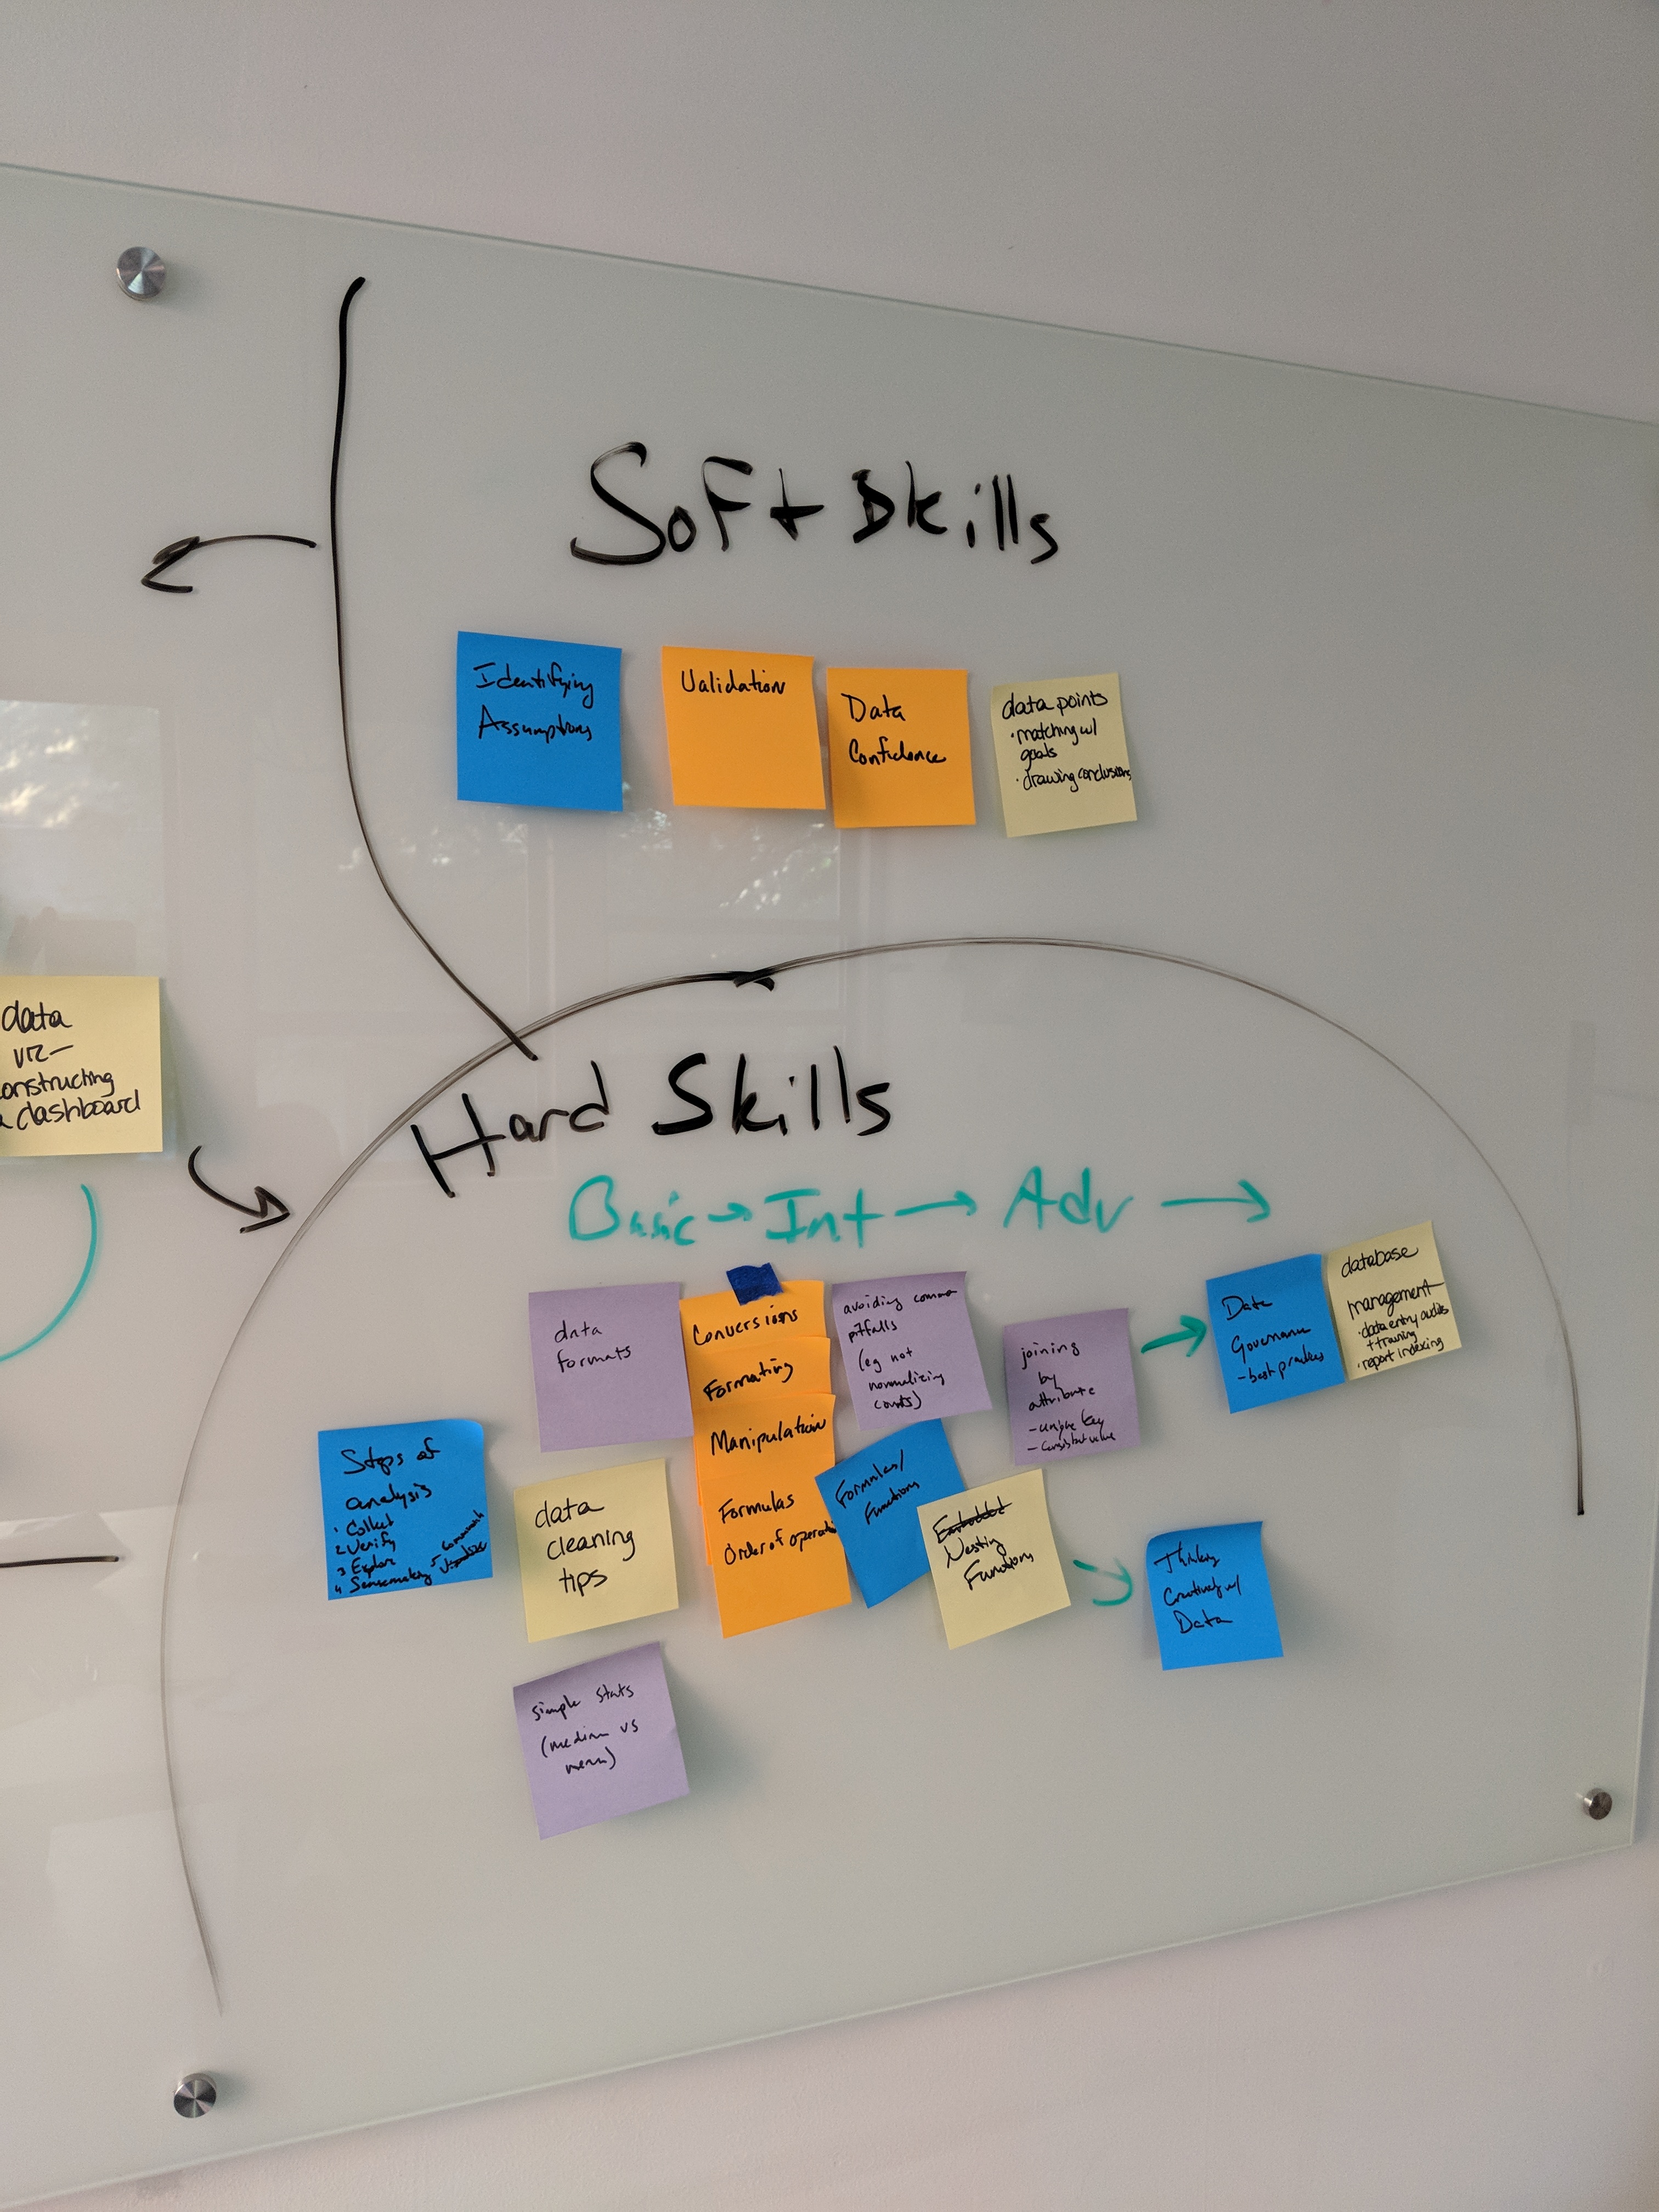 Soft Skills
Identifying
Assumptions
Validation
Data
Confidence
data points
• matching w/
goals
• drawing conclusions
data
viz—
onstructing
a dashboard
Hard Skills
Basic → Int → Adv →
data
formats
Conversions
Formating
Manipulation
Formulas
Order of operati
avoiding common
pitfalls
(eg not
normalizing
counts)
joining
by
attribute
- unique key
- consistent value
Data
Governance
- best practices
database
management
• data entry audits
+ training
• report indexing
Steps of
analysis
1 Collect
2 Verify
3 Explore
4 Sensemaking
5 Communicate
data
cleaning
tips
Formulas/
Functions
Embedded
Nesting
Functions
Thinking
Creatively w/
Data
simple stats
(median vs
mean)